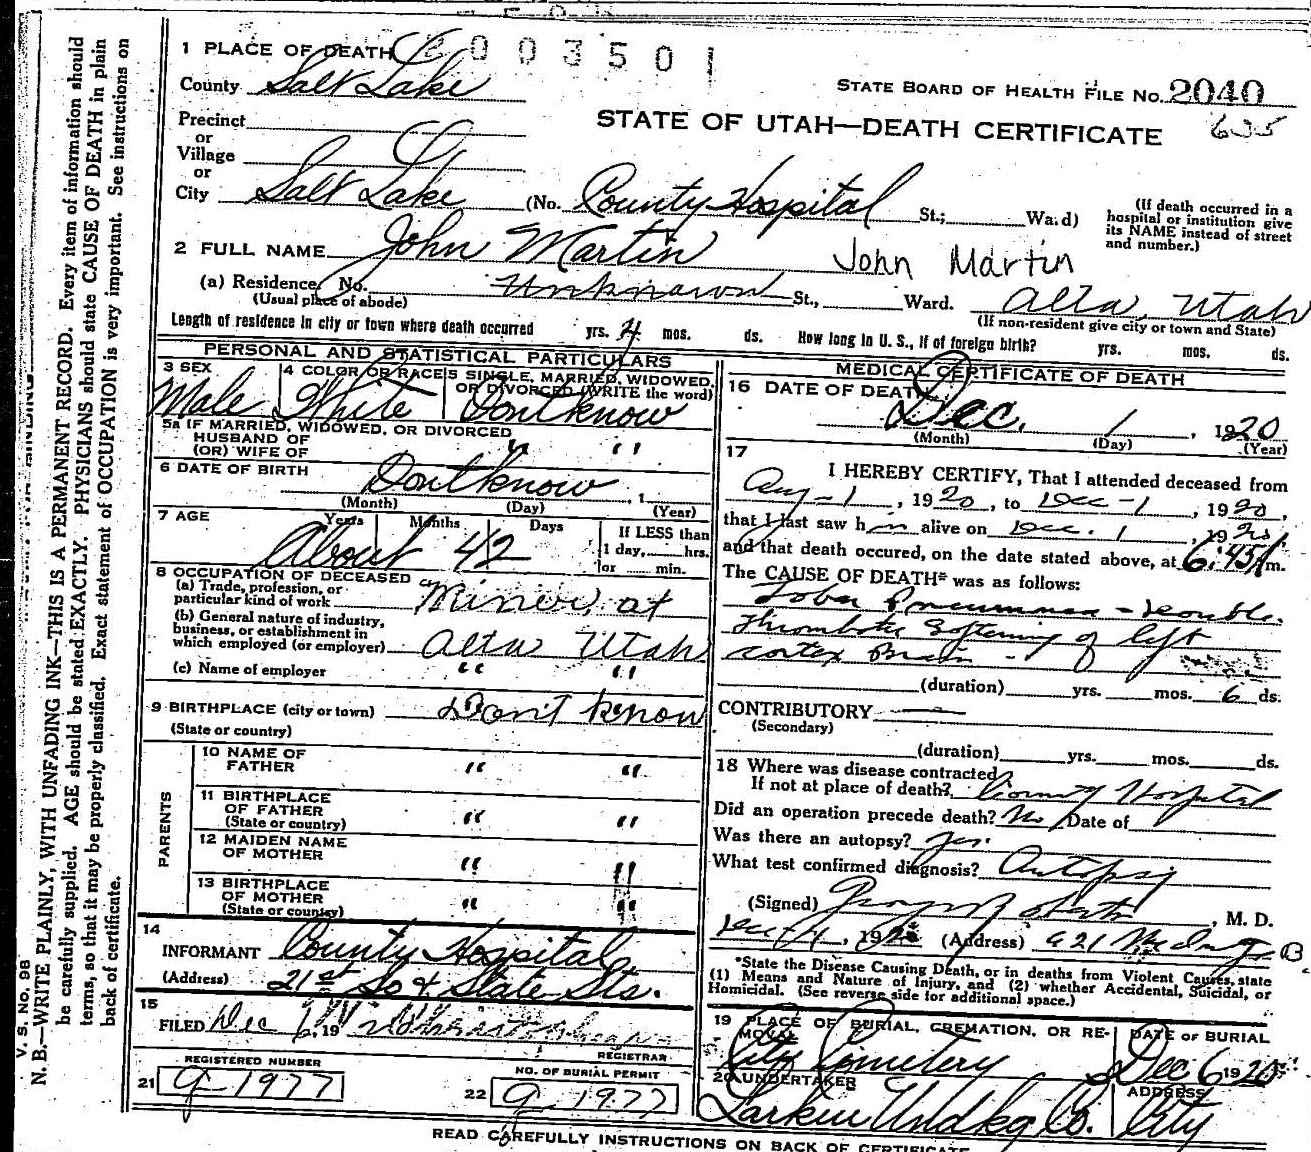 1 PLACE OF DEATH
2003501
County Salt Lake
STATE BOARD OF HEALTH FILE No. 2040
635
STATE OF UTAH—DEATH CERTIFICATE
Precinct
or
Village
or
City Salt Lake (No. County Hospital St.; Wa.d)
(If death occurred in a
hospital or institution give
its NAME instead of street
and number.)
2 FULL NAME John Martin John Martin
(a) Residence, No. Unknown St., Ward. Alta, Utah
(Usual place of abode) (If non-resident give city or town and State)
Length of residence in city or town where death occurred yrs. 4 mos. ds. How long in U. S., if of foreign birth? yrs. mos. ds.
PERSONAL AND STATISTICAL PARTICULARS
3 SEX
Male
4 COLOR OR RACE
White
5 SINGLE, MARRIED, WIDOWED,
OR DIVORCED (WRITE the word)
Dont know
5a IF MARRIED, WIDOWED, OR DIVORCED
HUSBAND OF
(OR) WIFE OF " "
6 DATE OF BIRTH
Dont know , 1
(Month) (Day) (Year)
7 AGE Years Months Days
About 42
If LESS than
1 day, hrs.
or min.
8 OCCUPATION OF DECEASED
(a) Trade, profession, or
particular kind of work Miner, at
(b) General nature of industry,
business, or establishment in
which employed (or employer) Alta Utah
(c) Name of employer " "
9 BIRTHPLACE (city or town) Don't know
(State or country)
PARENTS
10 NAME OF
FATHER " "
11 BIRTHPLACE
OF FATHER
(State or country) " "
12 MAIDEN NAME
OF MOTHER " "
13 BIRTHPLACE
OF MOTHER
(State or country) " "
14
INFORMANT County Hospital
(Address) 21st So & State Sts.
15
FILED Dec 6, 19
REGISTRAR
REGISTERED NUMBER
21 G-1977
NO. OF BURIAL PERMIT
22 G-1977
MEDICAL CERTIFICATE OF DEATH
16 DATE OF DEATH
Dec. 1 , 1920
(Month) (Day) (Year)
17
I HEREBY CERTIFY, That I attended deceased from
Aug-1 , 1920, to Dec-1 , 1920,
that I last saw him alive on Dec. 1 , 1920,
and that death occured, on the date stated above, at 6:45 m.
The CAUSE OF DEATH* was as follows:
Lobar Pneumonia - Double.
Thrombotic Softening of left
cortex Brain -
(duration) yrs. mos. 6 ds.
CONTRIBUTORY —
(Secondary)
(duration) yrs. mos. ds.
18 Where was disease contracted
If not at place of death? County Hospital
Did an operation precede death? No Date of
Was there an autopsy? Yes.
What test confirmed diagnosis? Autopsy
(Signed) , M. D.
Dec-4, 1920 (Address) 621
*State the Disease Causing Death, or in deaths from Violent Causes, state
(1) Means and Nature of Injury, and (2) whether Accidental, Suicidal, or
Homicidal. (See reverse side for additional space.)
19 PLACE OF BURIAL, CREMATION, OR RE-
MOVAL
City Cemetery
DATE OF BURIAL
Dec 6 1920
20 UNDERTAKER
Larkin Undkg Co.
ADDRESS
City
READ CAREFULLY INSTRUCTIONS ON BACK OF CERTIFICATE
V. S. No. 98
N. B.—WRITE PLAINLY, WITH UNFADING INK—THIS IS A PERMANENT RECORD. Every item of information should
be carefully supplied. AGE should be stated EXACTLY. PHYSICIANS should state CAUSE OF DEATH in plain
terms, so that it may be properly classified. Exact statement of OCCUPATION is very important. See instructions on
back of certificate.